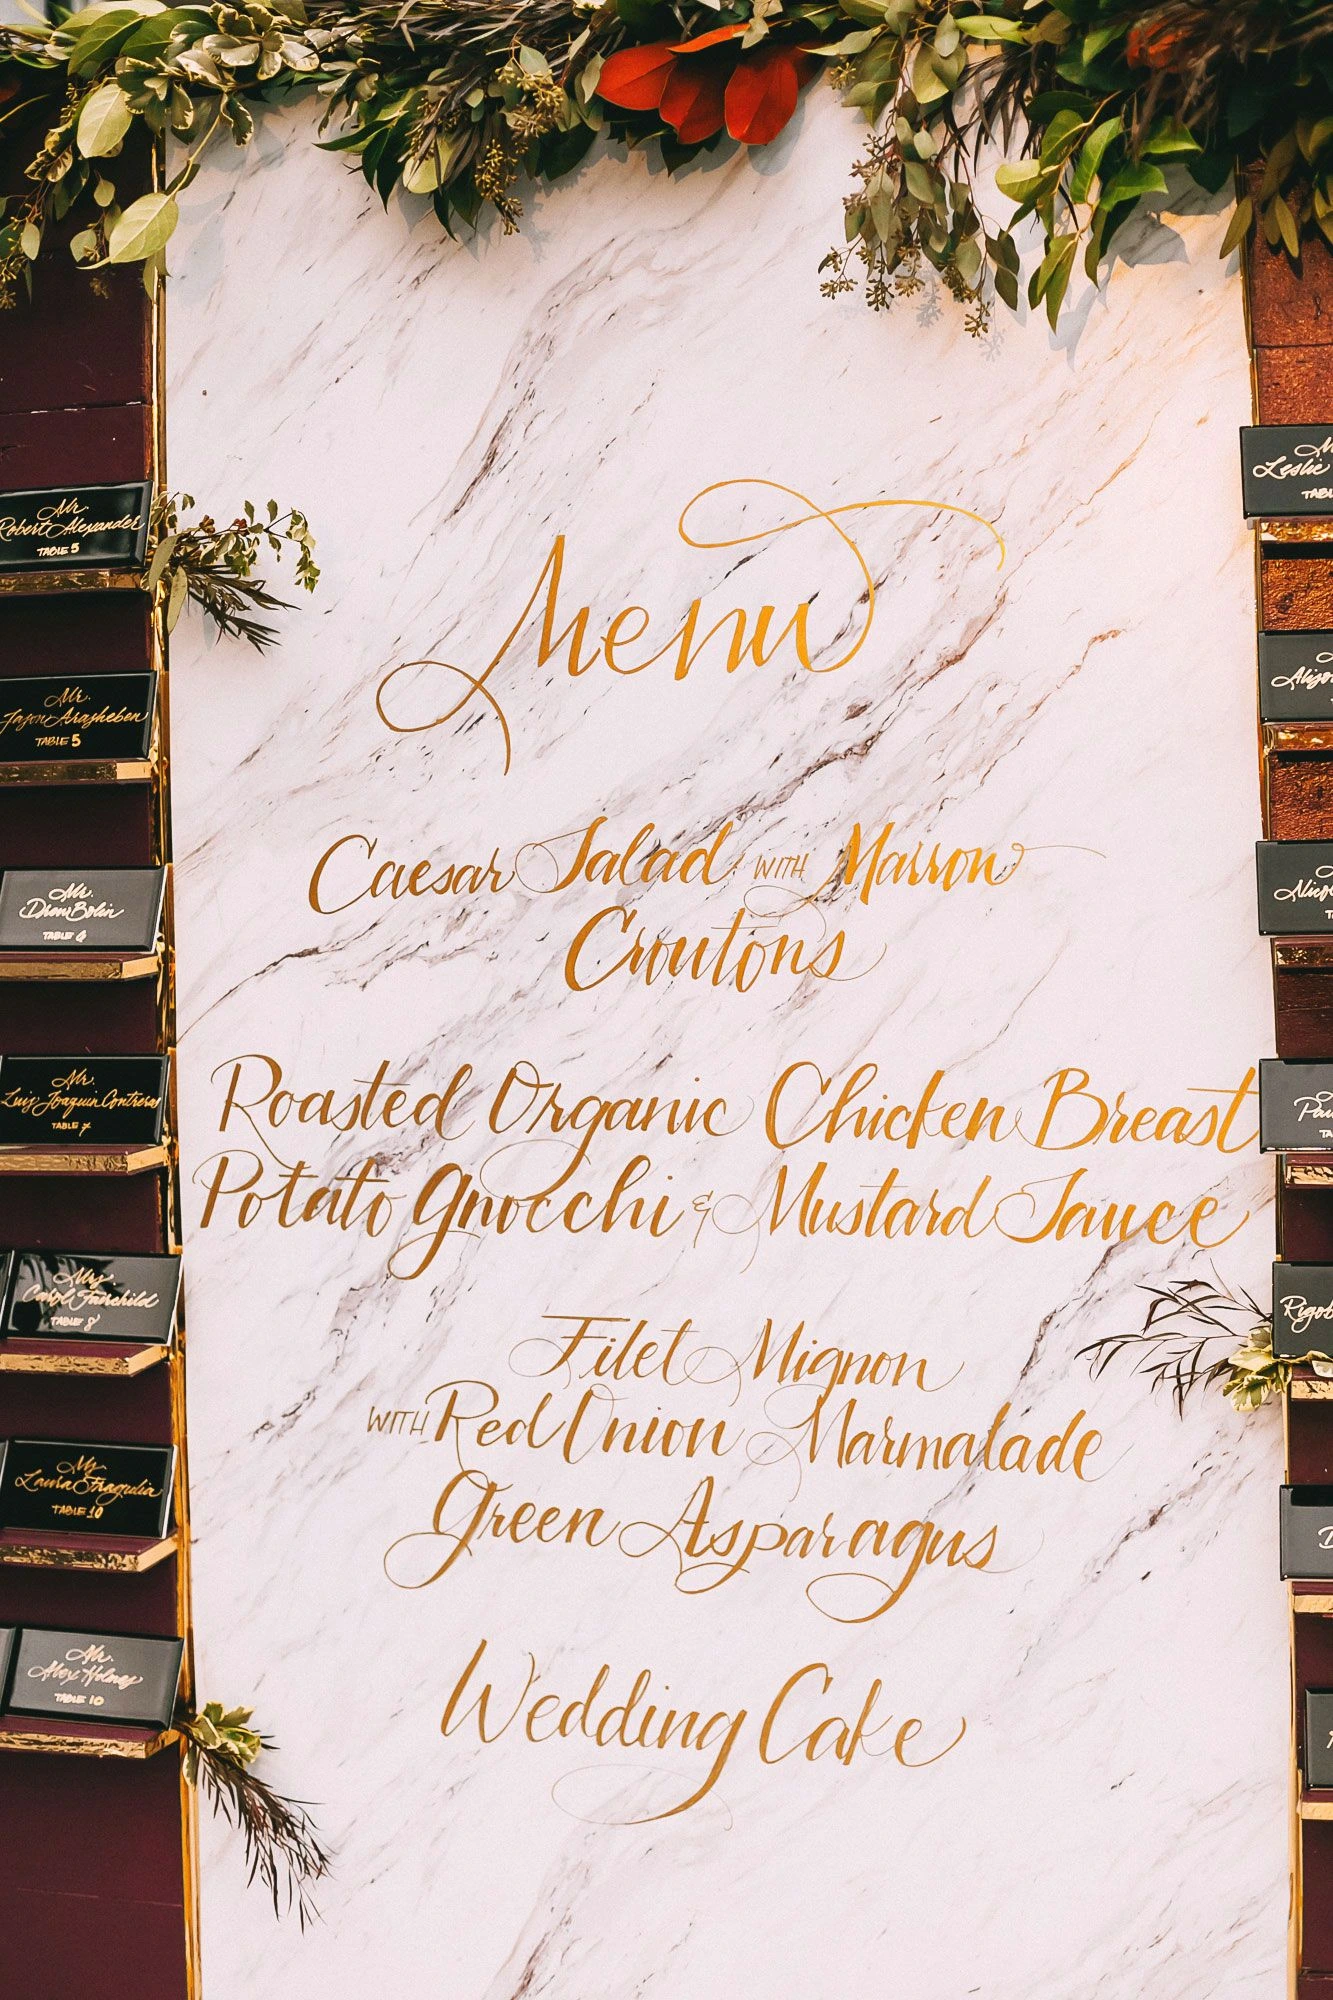 Menu
Caesar Salad WITH Marron
Croutons
Roasted Organic Chicken Breast
Potato Gnocchi & Mustard Sauce
Filet Mignon
WITH Red Onion Marmalade
Green Asparagus
Wedding Cake
Mr.
Robert Alexander
TABLE 5
Mr.
Jason Arasheben
TABLE 5
Mr.
Drew Bolin
TABLE 4
Mr.
Luis Joaquin Contreras
TABLE 7
Mrs.
Carol Fairchild
TABLE 8
Ms.
Laura Fragulia
TABLE 10
Mr.
Alex Holmes
TABLE 10
Leslie